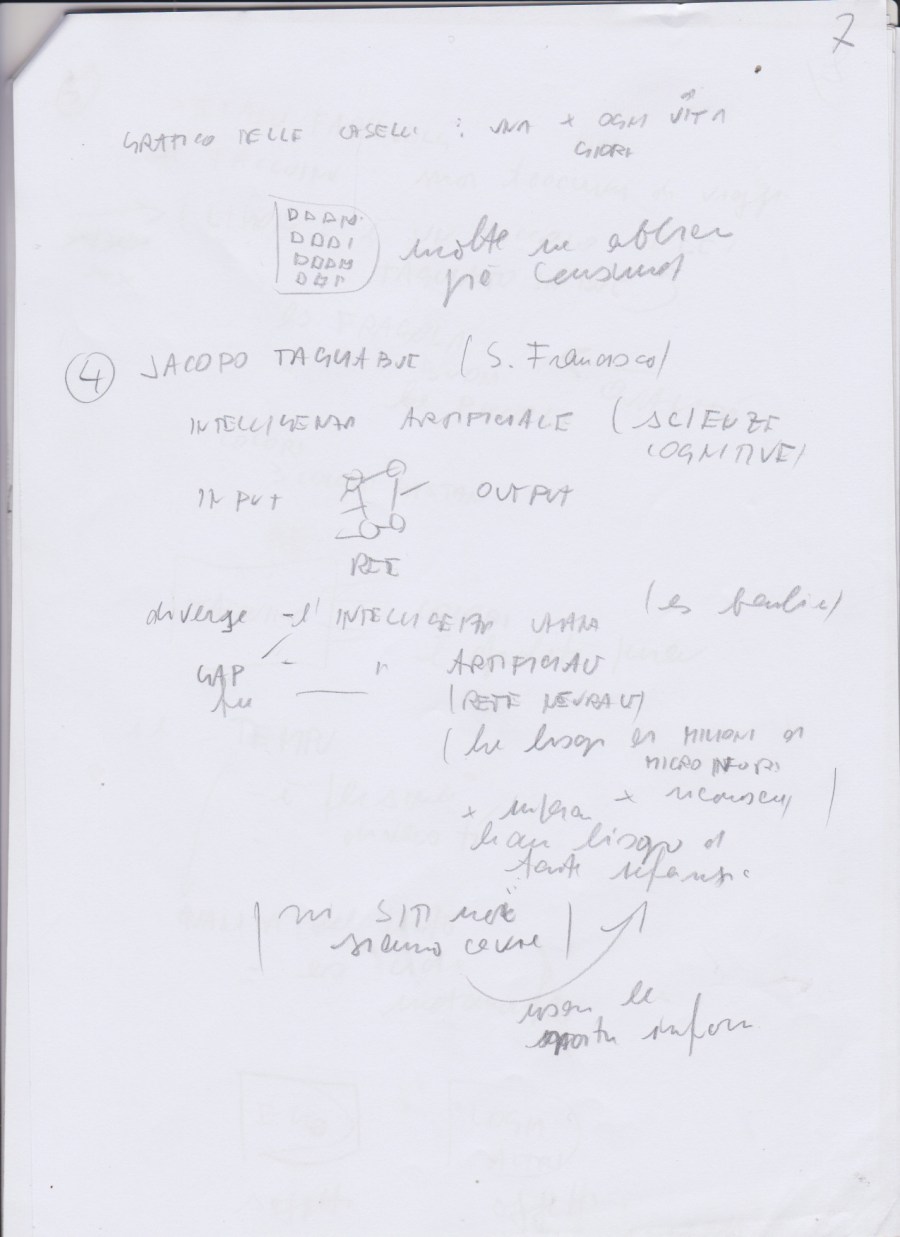 7
GRAFICO DELLE CASELLE : UNA × OGNI VITA
GIORN
molte ne abbiam
già consumat
④ JACOPO TAGLIABUE (S. Francisco)
INTELLIGENZA ARTIFICIALE (SCIENZE
COGNITIVE)
INPUT OUTPUT
RETE
diverge - l' INTELLIGENZA UMANA (es bambini)
GAP - " ARTIFICIALE
fra (RETE NEURALI)
(ha bisogn di MILIONI di
MICRO INFORM
× inform × riconoscer)
han bisogno di
tante informaz.
| SITI noi
siamo cavie |
usan le
nostre inform